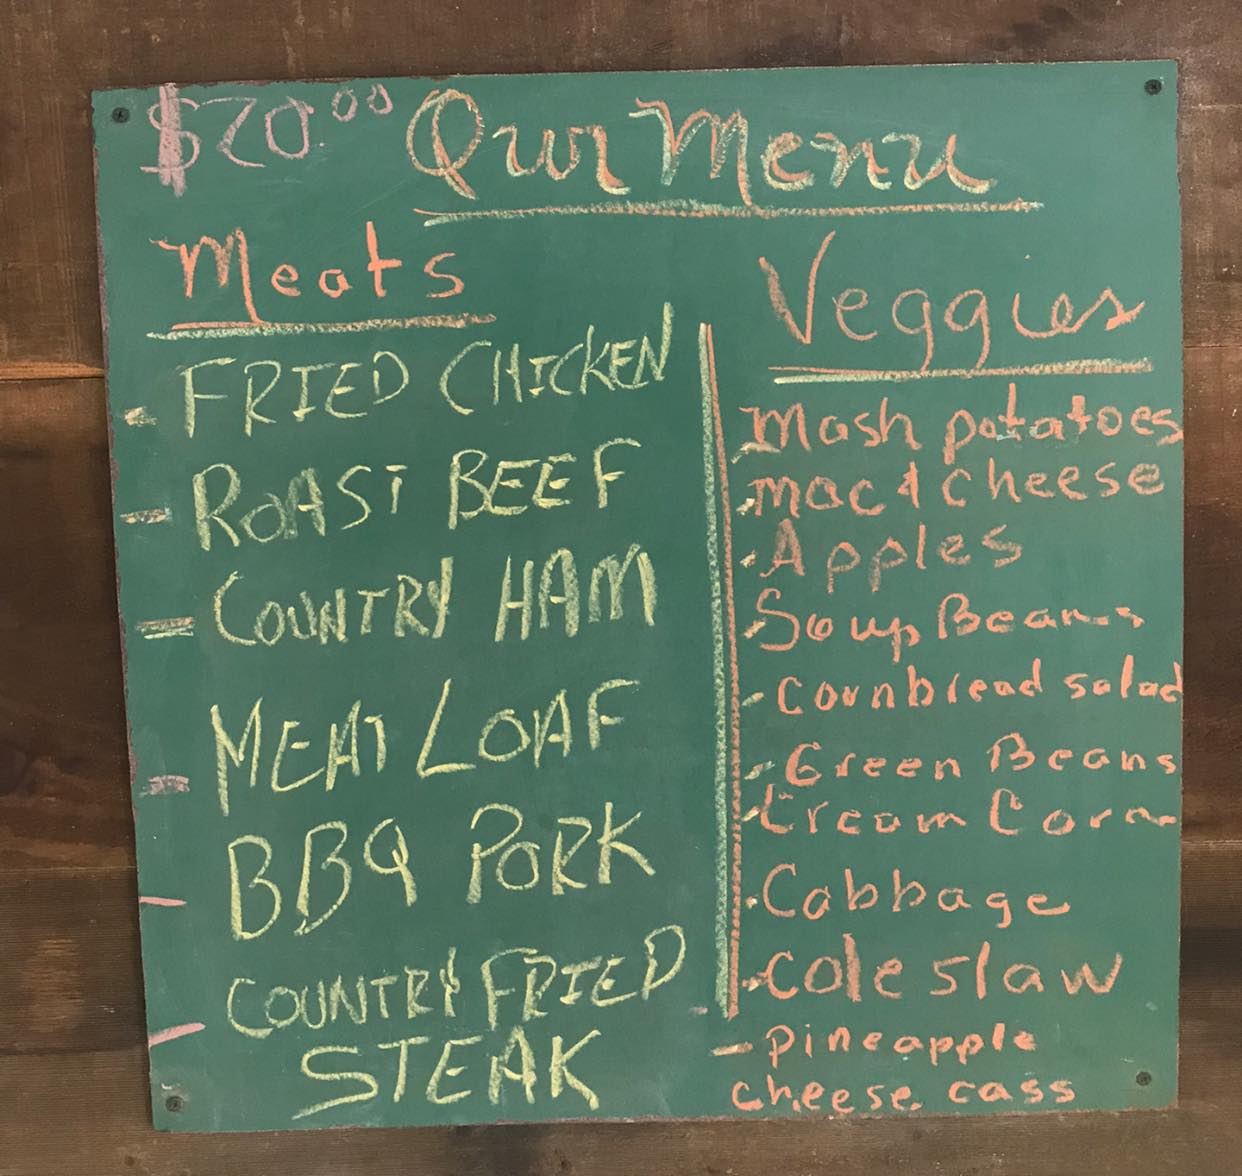 $20.00 Our Menu
Meats
- FRIED CHICKEN
- ROAST BEEF
- COUNTRY HAM
- MEAT LOAF
- BBQ PORK
- COUNTRY FRIED
STEAK
Veggies
- Mash potatoes
- mac & cheese
- Apples
- Soup Beans
- cornbread salad
- Green Beans
- Cream Corn
- Cabbage
- cole slaw
- Pineapple
cheese cass